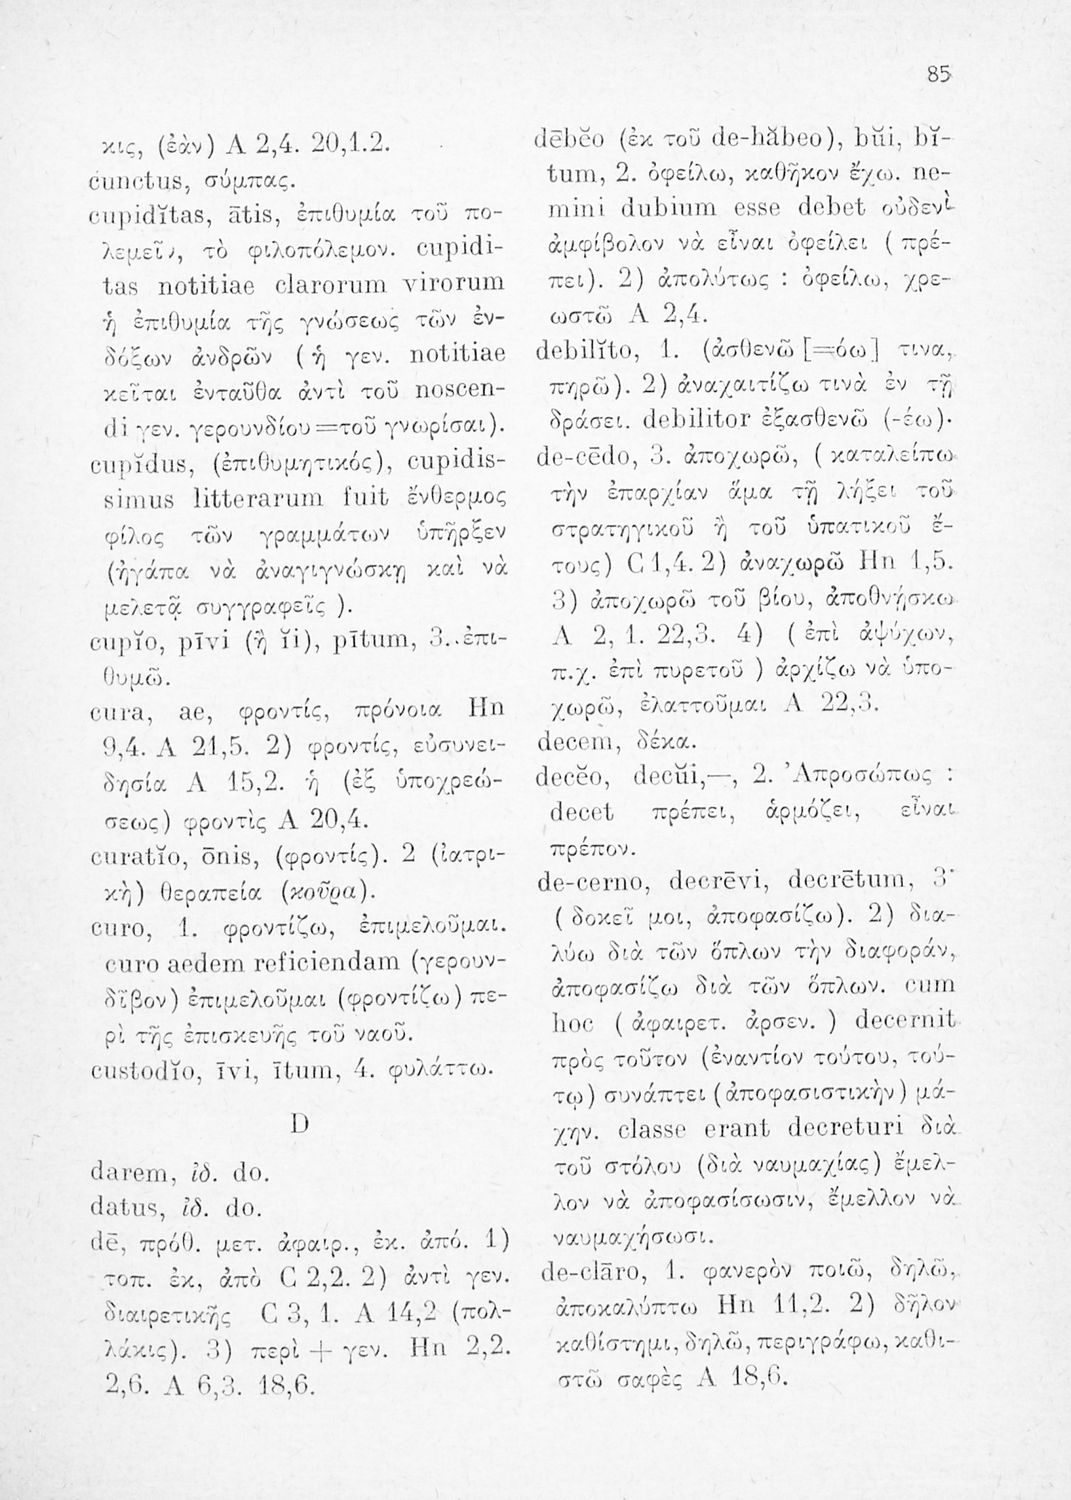 85
κις, (ἐὰν) A 2,4. 20,1.2.
cunctus, σύμπας.
cupidĭtas, ātis, ἐπιθυμία τοῦ πο-
λεμεῖν, τὸ φιλοπόλεμον. cupidi-
tas notitiae clarorum virorum
ἡ ἐπιθυμία τῆς γνώσεως τῶν ἐν-
δόξων ἀνδρῶν (ἡ γεν. notitiae
κεῖται ἐνταῦθα ἀντὶ τοῦ noscen-
di γεν. γερουνδίου=τοῦ γνωρίσαι).
cupĭdus, (ἐπιθυμητικός), cupidis-
simus litterarum fuit ἔνθερμος
φίλος τῶν γραμμάτων ὑπῆρξεν
(ἠγάπα νὰ ἀναγιγνώσκῃ καὶ νὰ
μελετᾷ συγγραφεῖς ).
cupĭo, pīvi (ἢ ĭi), pītum, 3. ἐπι-
θυμῶ.
cura, ae, φροντίς, πρόνοια Hn
9,4. A 21,5. 2) φροντίς, εὐσυνει-
δησία A 15,2. ἡ (ἐξ ὑποχρεώ-
σεως) φροντὶς A 20,4.
curatĭo, ōnis, (φροντίς). 2 (ἰατρι-
κὴ) θεραπεία (κοῦρα).
curo, 1. φροντίζω, ἐπιμελοῦμαι.
curo aedem reficiendam (γερουν-
δῖβον) ἐπιμελοῦμαι (φροντίζω) πε-
ρὶ τῆς ἐπισκευῆς τοῦ ναοῦ.
custodĭo, īvi, ītum, 4. φυλάττω.
D
darem, ἰδ. do.
datus, ἰδ. do.
dē, πρόθ. μετ. ἀφαιρ., ἐκ. ἀπό. 1)
τοπ. ἐκ, ἀπὸ C 2,2. 2) ἀντὶ γεν.
διαιρετικῆς C 3, 1. A 14,2 (πολ-
λάκις). 3) περὶ + γεν. Hn 2,2.
2,6. A 6,3. 18,6.
dēbĕo (ἐκ τοῦ de-hăbeo), bŭi, bĭ-
tum, 2. ὀφείλω, καθῆκον ἔχω. ne-
mini dubium esse debet οὐδενὶ
ἀμφίβολον νὰ εἶναι ὀφείλει ( πρέ-
πει). 2) ἀπολύτως : ὀφείλω, χρε-
ωστῶ A 2,4.
debilĭto, 1. (ἀσθενῶ [=όω] τινα,
πηρῶ). 2) ἀναχαιτίζω τινὰ ἐν τῇ
δράσει. debilitor ἐξασθενῶ (-έω).
de-cēdo, 3. ἀποχωρῶ, ( καταλείπω
τὴν ἐπαρχίαν ἅμα τῇ λήξει τοῦ
στρατηγικοῦ ἢ τοῦ ὑπατικοῦ ἔ-
τους) C 1,4. 2) ἀναχωρῶ Hn 1,5.
3) ἀποχωρῶ τοῦ βίου, ἀποθνῄσκω
A 2, 1. 22,3. 4) ( ἐπὶ ἀψύχων,
π.χ. ἐπὶ πυρετοῦ ) ἀρχίζω νὰ ὑπο-
χωρῶ, ἐλαττοῦμαι A 22,3.
decem, δέκα.
decĕo, decŭi,—, 2. Ἀπροσώπως :
decet πρέπει, ἁρμόζει, εἶναι
πρέπον.
de-cerno, decrēvi, decrētum, 3·
( δοκεῖ μοι, ἀποφασίζω). 2) δια-
λύω διὰ τῶν ὅπλων τὴν διαφοράν,
ἀποφασίζω διὰ τῶν ὅπλων. cum
hoc ( ἀφαιρετ. ἀρσεν. ) decernit
πρὸς τοῦτον (ἐναντίον τούτου, τού-
τῳ) συνάπτει (ἀποφασιστικὴν) μά-
χην. classe erant decreturi διὰ
τοῦ στόλου (διὰ ναυμαχίας) ἔμελ-
λον νὰ ἀποφασίσωσιν, ἔμελλον νὰ
ναυμαχήσωσι.
de-clāro, 1. φανερὸν ποιῶ, δηλῶ,
ἀποκαλύπτω Hn 11,2. 2) δῆλον
καθίστημι, δηλῶ, περιγράφω, καθι-
στῶ σαφὲς A 18,6.